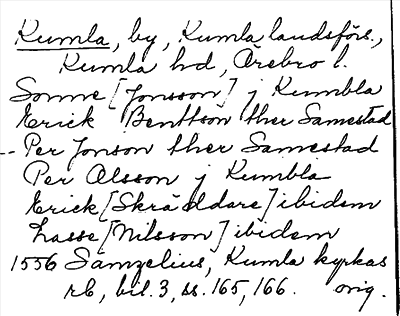 Kumla, by, Kumla landsförs.,
Kumla hd, Örebro l.
Sonne [Jonsson] j Kumbla
Erick Benttson ther Samestad
-- Per Jonson ther Samestad
Per Olsson j Kumbla
Erick [Skräddare] ibidem
Lasse [Nilsson] ibidem
1556 Sämzelius, Kumla kyrkas
rb, bil. 3, ss. 165, 166. orig.